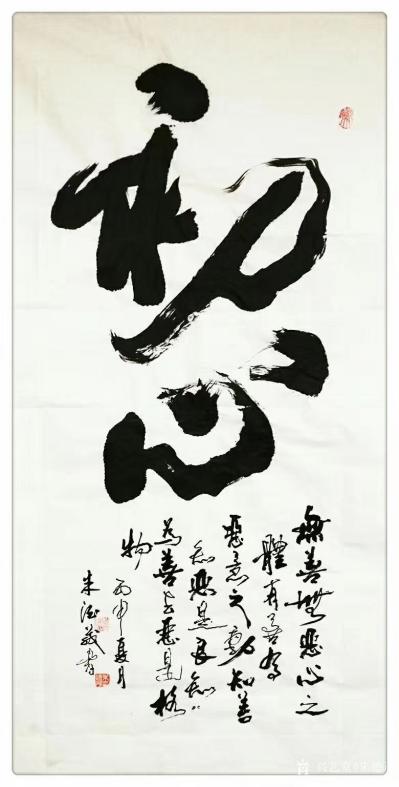 初心
無善無惡心之
體有善有
惡意之動知善
知惡是良知
為善去惡是格
物
丙申夏月